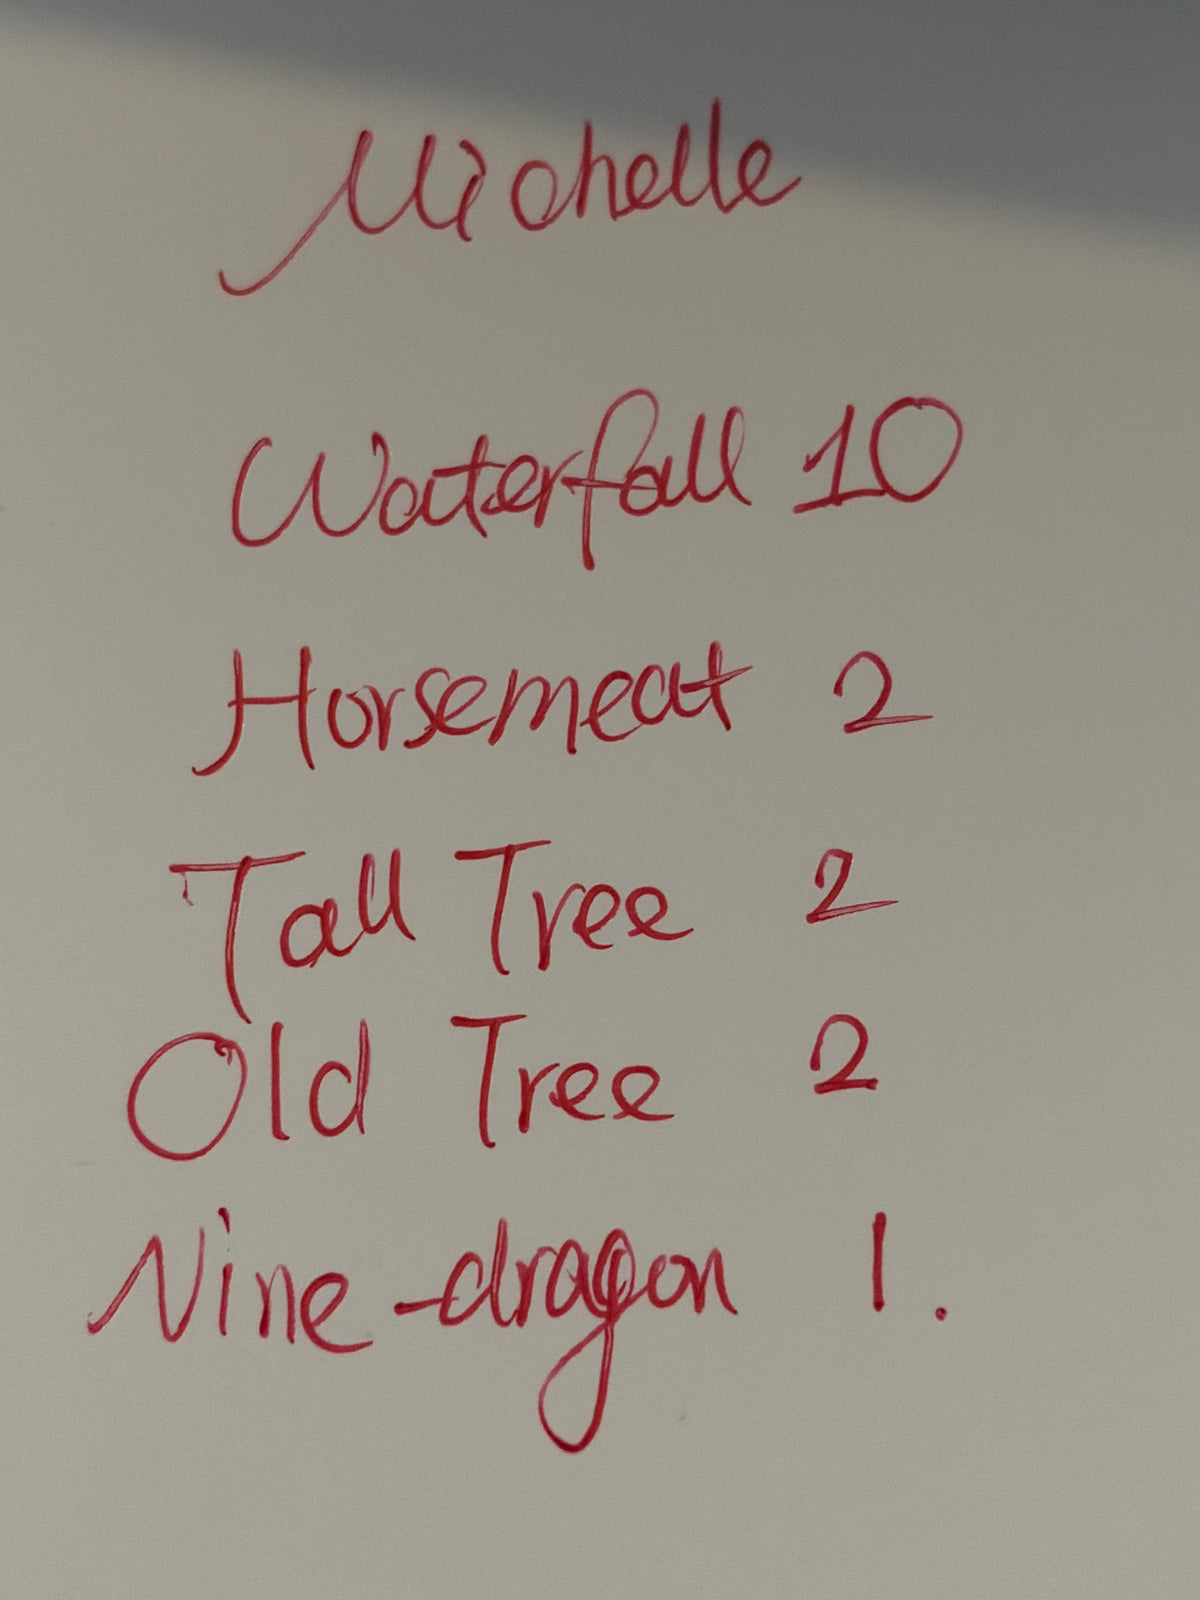 Michelle
Waterfall 10
Horsemeat 2
Tall Tree 2
Old Tree 2
Nine-dragon 1.